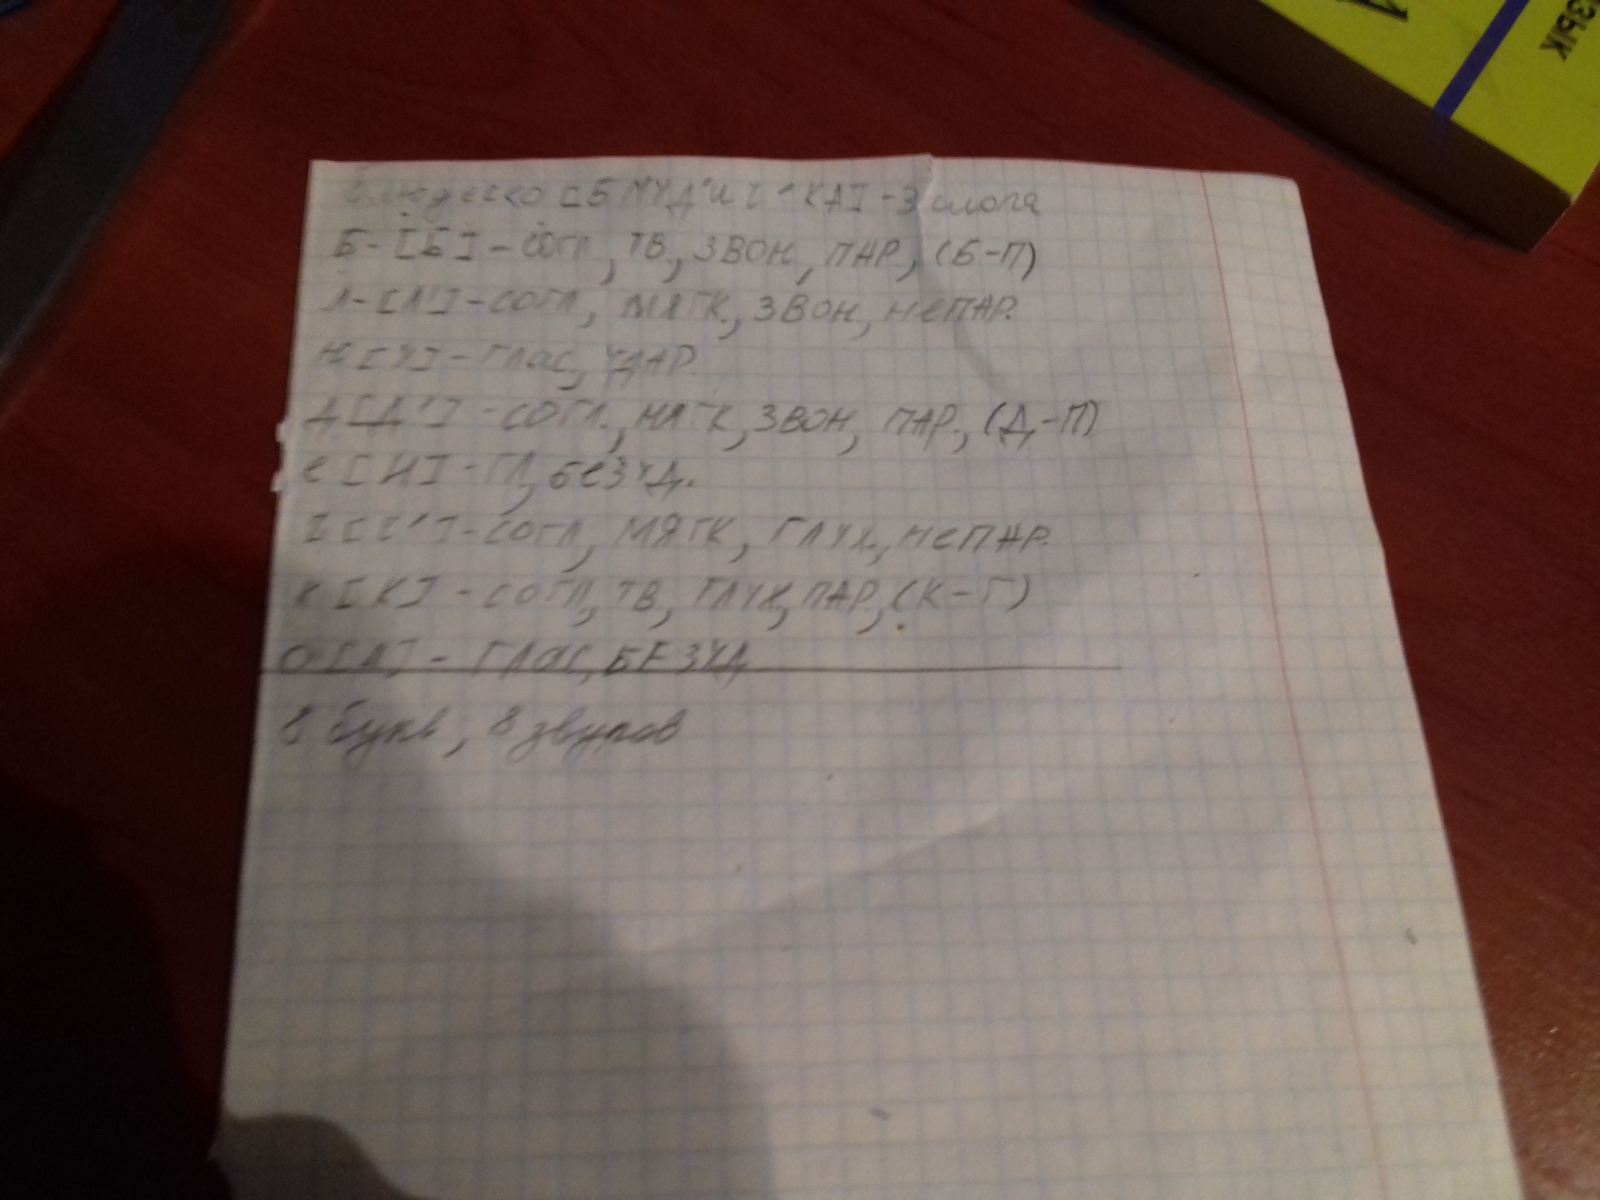 блюдечко [БЛ'УД'ИЧ'КА] - 3 слога
Б - [Б] - согл, ТВ, ЗВОН, ПАР, (Б-П)
Л - [Л'] - СОГЛ, МЯГК, ЗВОН, НеПАР.
Ю [У] - ГЛас, УДАР.
Д [Д'] - СОГЛ., МЯГК, ЗВОН, ПАР., (Д-П)
е [И] - ГЛ, БеЗУД.
Ч [Ч'] - СОГЛ, МЯГК, ГЛУХ, НеПАР.
К [К] - СОГЛ, ТВ, ГЛУХ, ПАР, (К-Г)
О [А] - ГЛас, БЕЗУД
8 букв, 8 звуков
ЗЫК